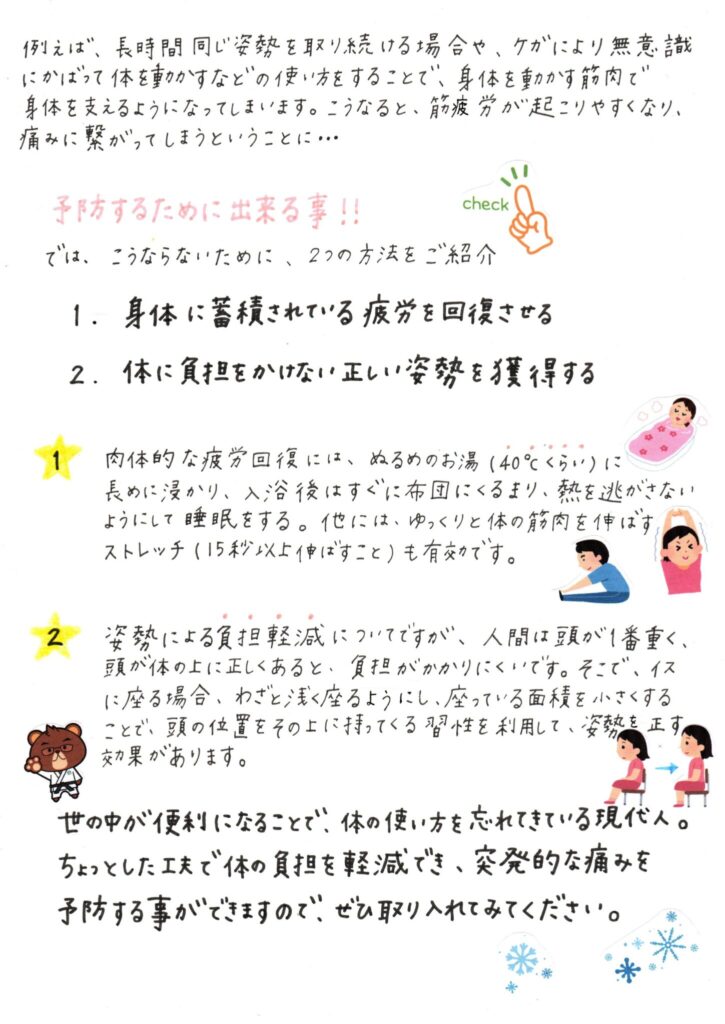 例えば、長時間同じ姿勢を取り続ける場合や、ケガにより無意識
にかばって体を動かすなどの使い方をすることで、身体を動かす筋肉で
身体を支えるようになってしまいます。こうなると、筋疲労が起こりやすくなり、
痛みに繋がってしまうということに…
予防するために出来る事!!
check
では、こうならないために、2つの方法をご紹介
1. 身体に蓄積されている疲労を回復させる
2. 体に負担をかけない正しい姿勢を獲得する
1
肉体的な疲労回復には、ぬるめのお湯(40℃くらい)に
長めに浸かり、入浴後はすぐに布団にくるまり、熱を逃がさない
ようにして睡眠をする。他には、ゆっくりと体の筋肉を伸ばす
ストレッチ(15秒以上伸ばすこと)も有効です。
2
姿勢による負担軽減についてですが、人間は頭が1番重く、
頭が体の上に正しくあると、負担がかかりにくいです。そこで、イス
に座る場合、わざと浅く座るようにし、座っている面積を小さくする
ことで、頭の位置をその上に持ってくる習性を利用して、姿勢を正す
効果があります。
世の中が便利になることで、体の使い方を忘れてきている現代人。
ちょっとした工夫で体の負担を軽減でき、突発的な痛みを
予防する事ができますので、ぜひ取り入れてみてください。